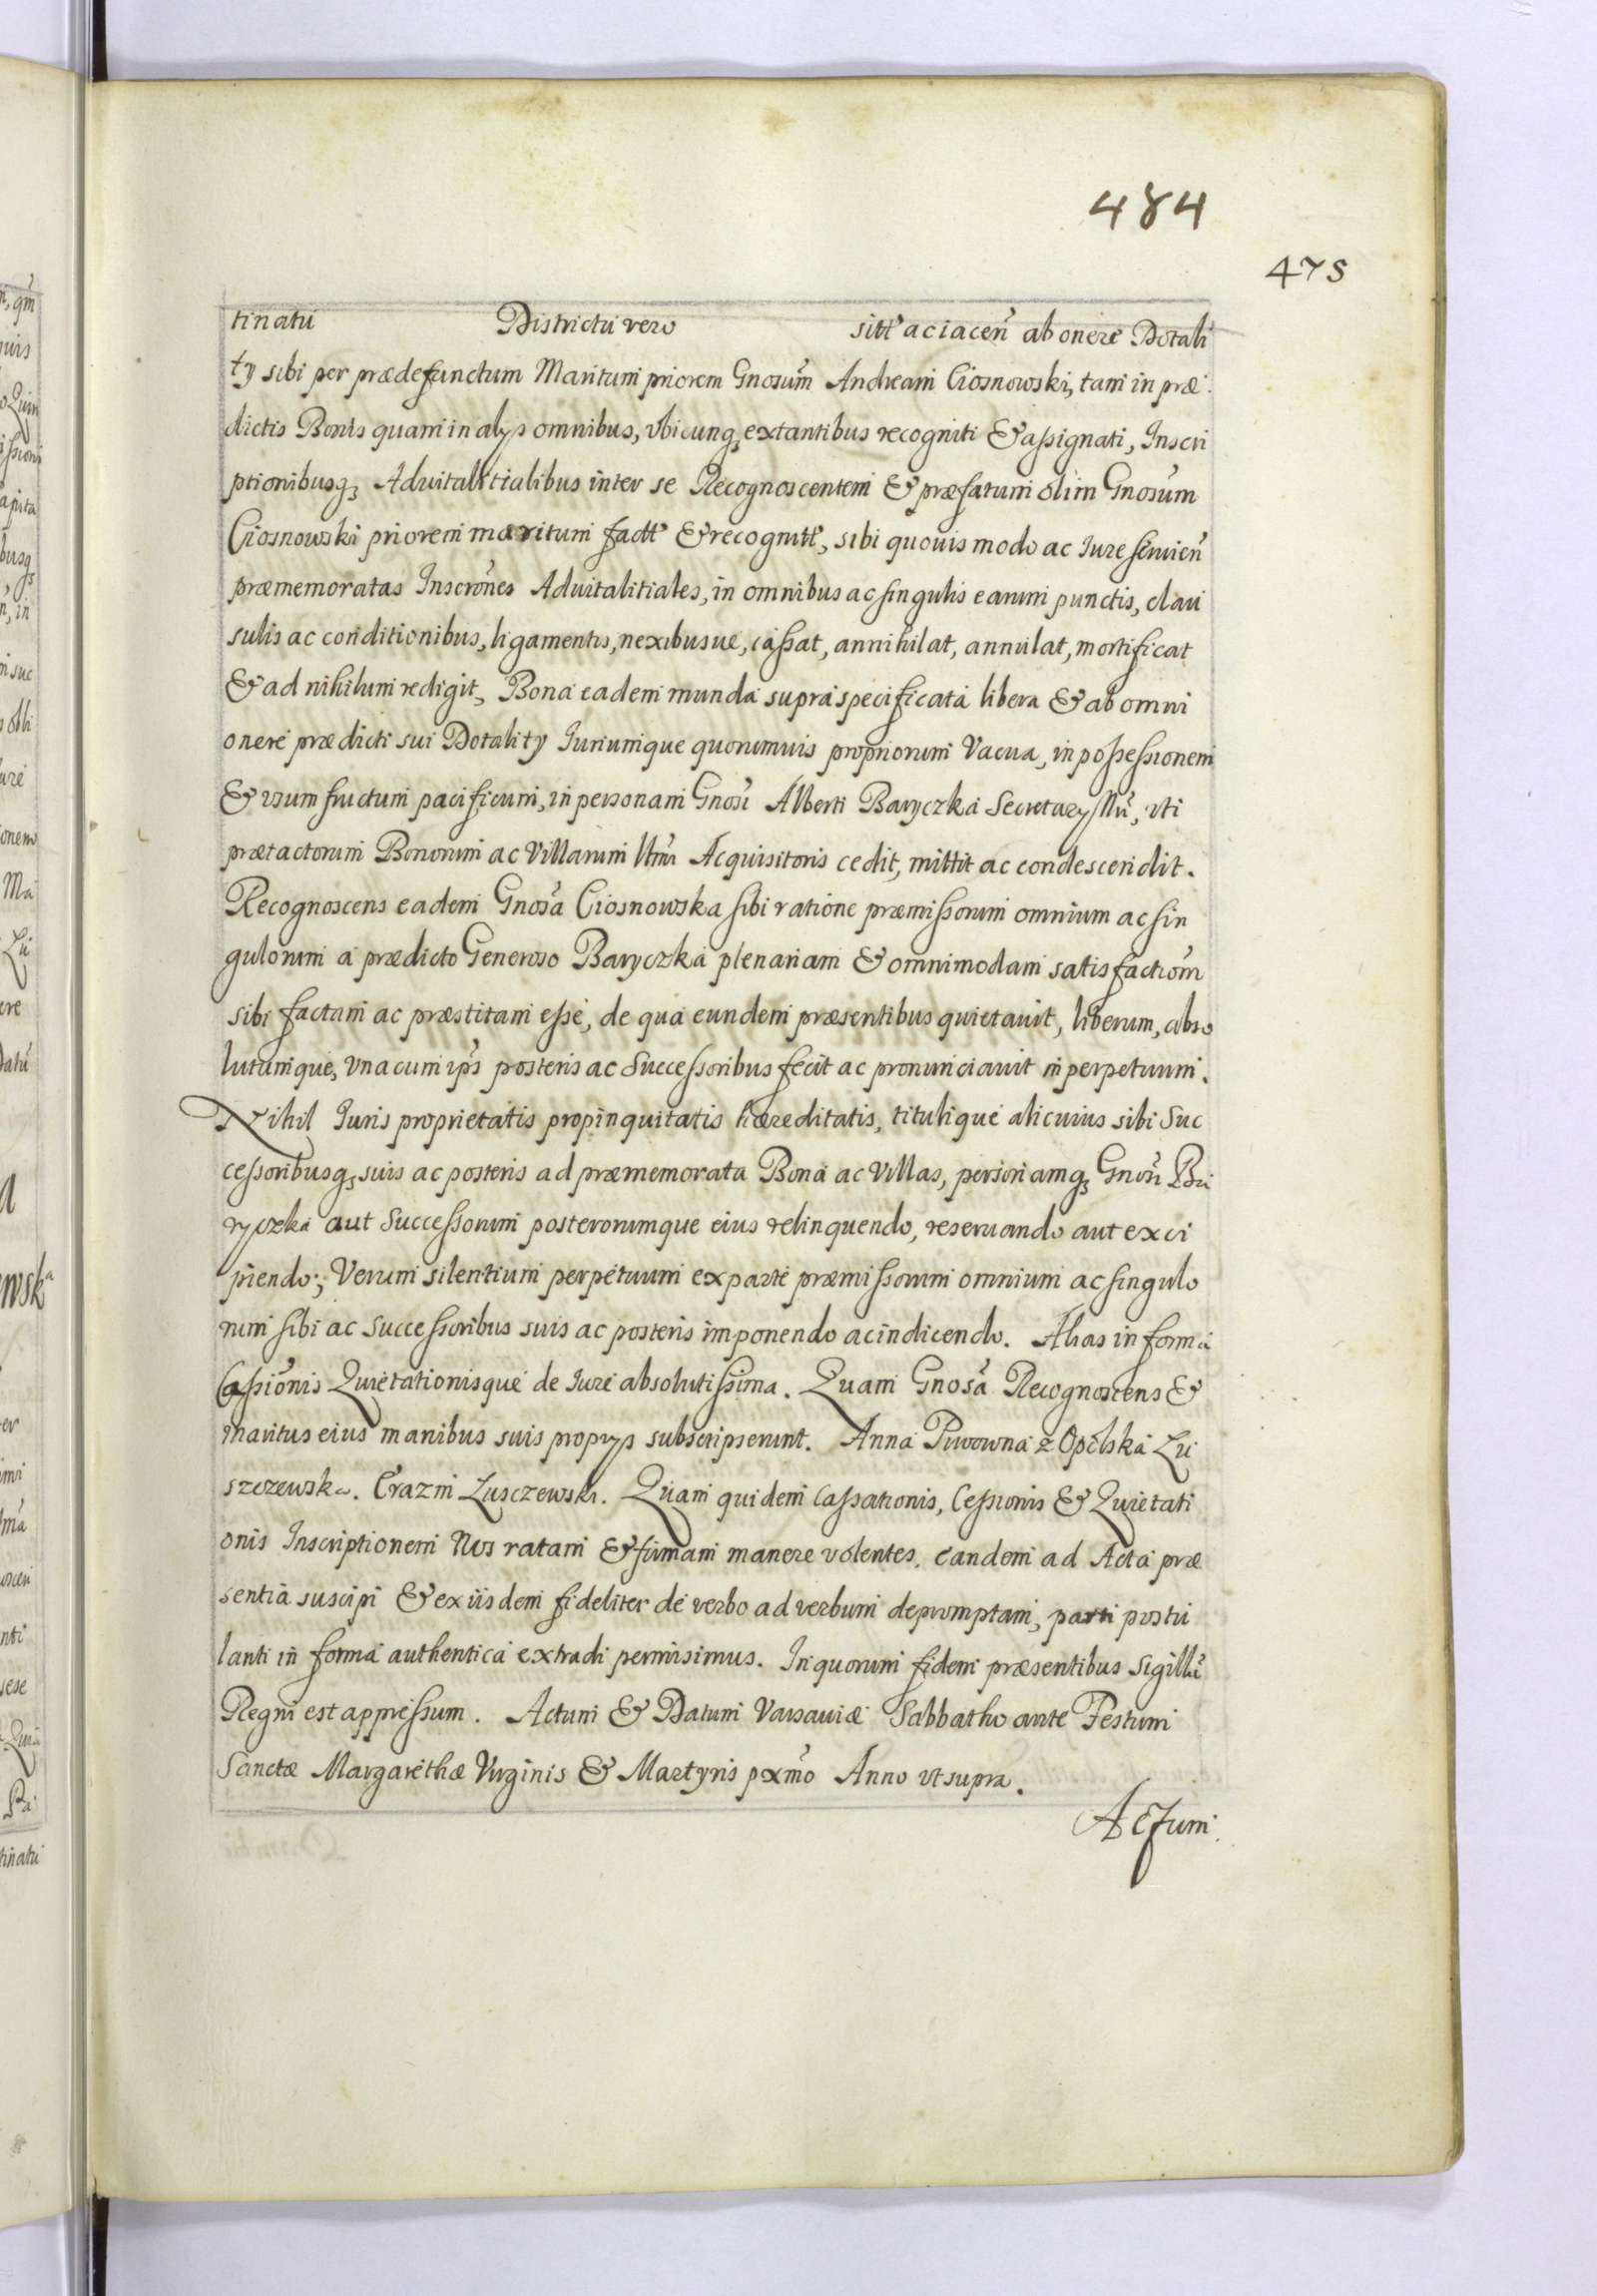 484
475
tinatu Districtu vero sitt aciacen̄ ab onere Dotali
ty sibi per prædefunctum Maritum priorem Gnosum Andream Ciosnowski, tam in præ
dictis Bonis quam in alys omnibus, vbicunq; extantibus recogniti & assignati, Inscri
ptionibusq; Aduitalitialibus inter se Recognoscentem & præfatum olim Gnosum
Ciosnowski priorem maritum factt & recognitt, sibi quouis modo ac Iure seruien̄
præmemoratas Inscrōnes Aduitalitiales, in omnibus ac singulis earum punctis, clau
sulis ac conditionibus, ligamentis, nexibusue, cassat, annihilat, annulat, mortificat
& ad nihilum redigit, Bona eadem munda supra specificata libera & ab omni
onere prædicti sui Dotality Iuriumque quorumuis propriorum Vacua, in possessionem
& vsum fructum pacificum, in personam Gnosi Alberti Baryczka Secretary, vti
prætactorum Bonorum ac Villarum Acquisitoris cedit, mittit ac condescendit.
Recognoscens eadem Gnosa Ciosnowska sibi ratione præmissorum omnium ac sin
gulorum a prædicto Generoso Baryczka plenariam & omnimodam satisfactiom̄
sibi factam ac præstitam esse, de qua eundem præsentibus quietauit, liberum, abso
lutumque, vna cum ips̄ posteris ac Successoribus fecit ac pronunciauit in perpetuum.
Nihil Iuris proprietatis propinquitatis hæreditatis, titulique alicuius sibi Suc
cessoribusq; suis ac posteris ad præmemorata Bona ac Villas, personamq; Gnosi Ba
ryczka aut Successorum posterorumque eius relinquendo, reseruando aut exci
piendo; Verum silentium perpetuum ex parte præmissorum omnium ac singulo
rum sibi ac Successoribus suis ac posteris imponendo ac indicendo. Alias in forma
Cassionis Quietationisque de Iure absolutissima. Quam Gnosa Recognoscens &
maritus eius manibus suis proprys subscripserunt. Anna Piwowna z Opolska Lu
szczewska. Erazm Lusczewski. Quam quidem Cassationis, Cessionis & Quietati
onis Inscriptionem Nos ratam & firmam manere volentes. Eandem ad Acta præ
sentia suscipi & ex iisdem fideliter de verbo ad verbum depromptam, parti postu
lanti in forma authentica extradi permisimus. In quorum fidem præsentibus Sigillū
Regni est appressum. Actum & Datum Varsauiæ Sabbatho ante Festum
Sanctæ Margarethæ Virginis & Martyris pxm̄o Anno vt supra.
Actum